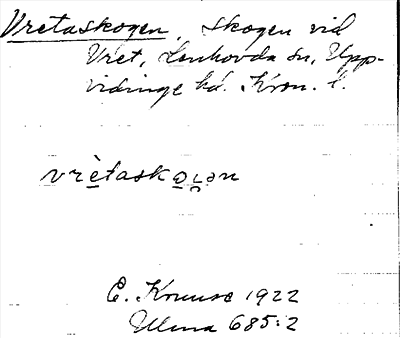 Vretaskogen, skogen vid
Vret, Lenhovda sn, Upp-
vidinge hd. Kron. l.
vrètaskoɩ̯ən
E. Kruuse 1922
Ulma 685:2